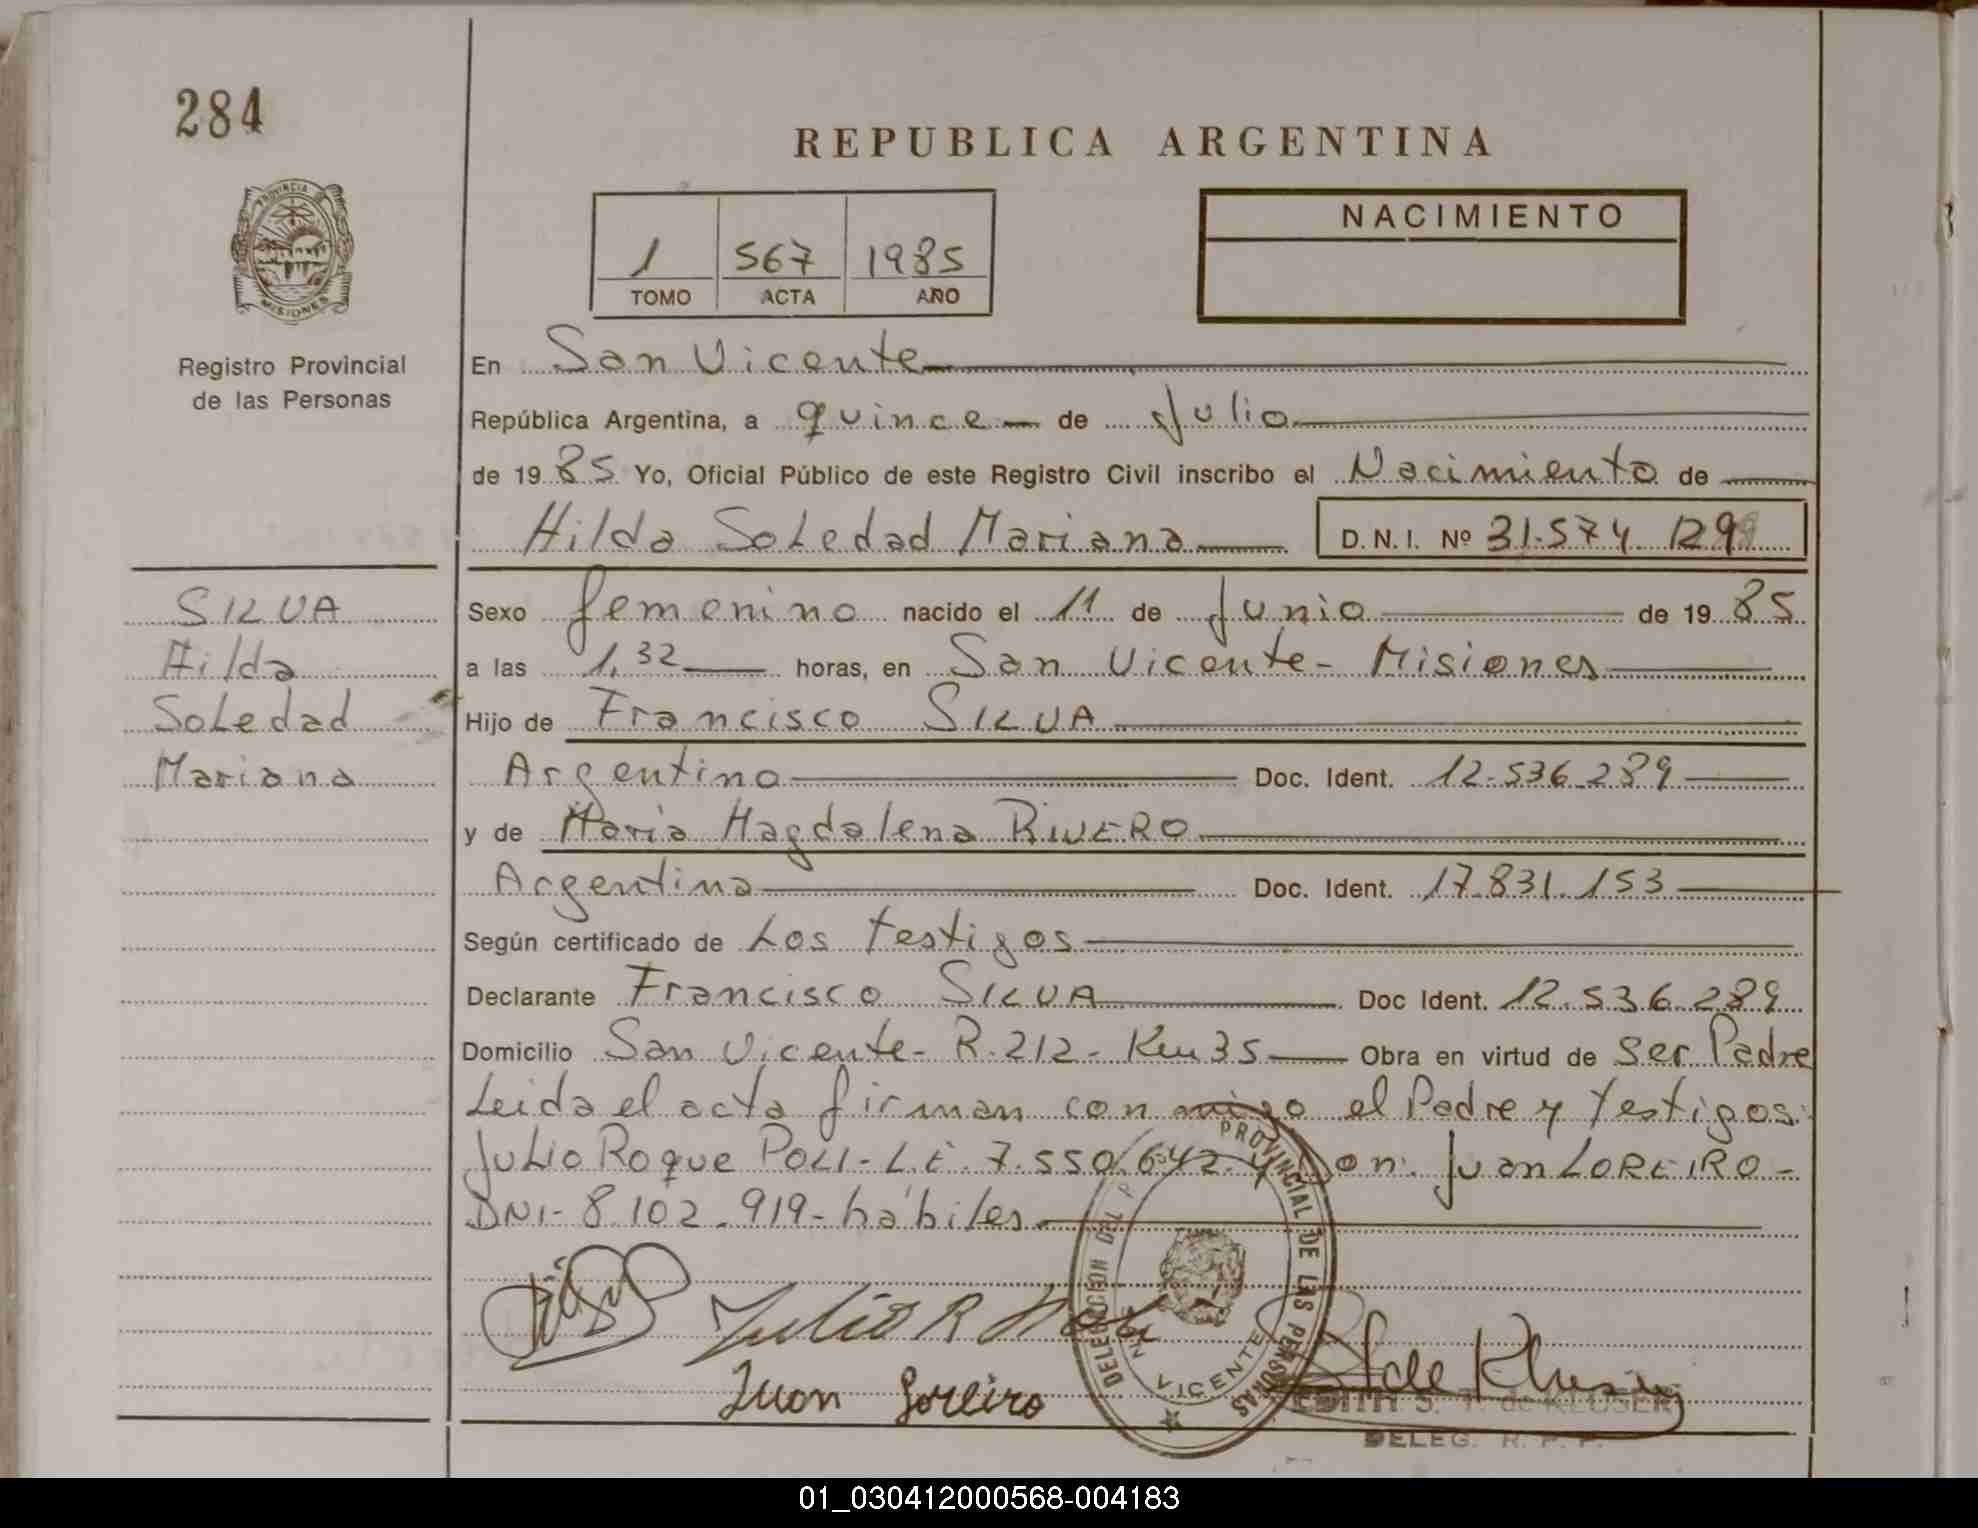 284
REPUBLICA ARGENTINA
PROVINCIA DE MISIONES
Registro Provincial
de las Personas
1 567 1985
TOMO ACTA AÑO
NACIMIENTO
En San Vicente
República Argentina, a quince de Julio
de 1985 Yo, Oficial Público de este Registro Civil inscribo el Nacimiento de
Hilda Soledad Mariana D.N.I. Nº 31.574.129
SILVA
Hilda
Soledad
Mariana
Sexo femenino nacido el 11 de Junio de 1985
a las 1,32 horas, en San Vicente - Misiones
Hijo de Francisco SILVA
Argentino Doc. Ident. 12.536.289
y de María Magdalena RIVERO
Argentina Doc. Ident. 17.831.153
Según certificado de Los testigos
Declarante Francisco SILVA Doc Ident. 12.536.289
Domicilio San Vicente - R.212 - Km 35 Obra en virtud de Ser Padre
Leida el acta firman con migo el Padre y testigos:
Julio Roque POLI - L.E. 7.550.642 y Don: Juan LOREIRO -
DNI - 8.102.919 - hábiles
Julio R Poli
Juan Loreiro
DELEGACION DEL PROVINCIAL DE LAS PERSONAS
VICENTE
EDITH S. T. de KLUSER
DELEG. R. P. P.
01_030412000568-004183